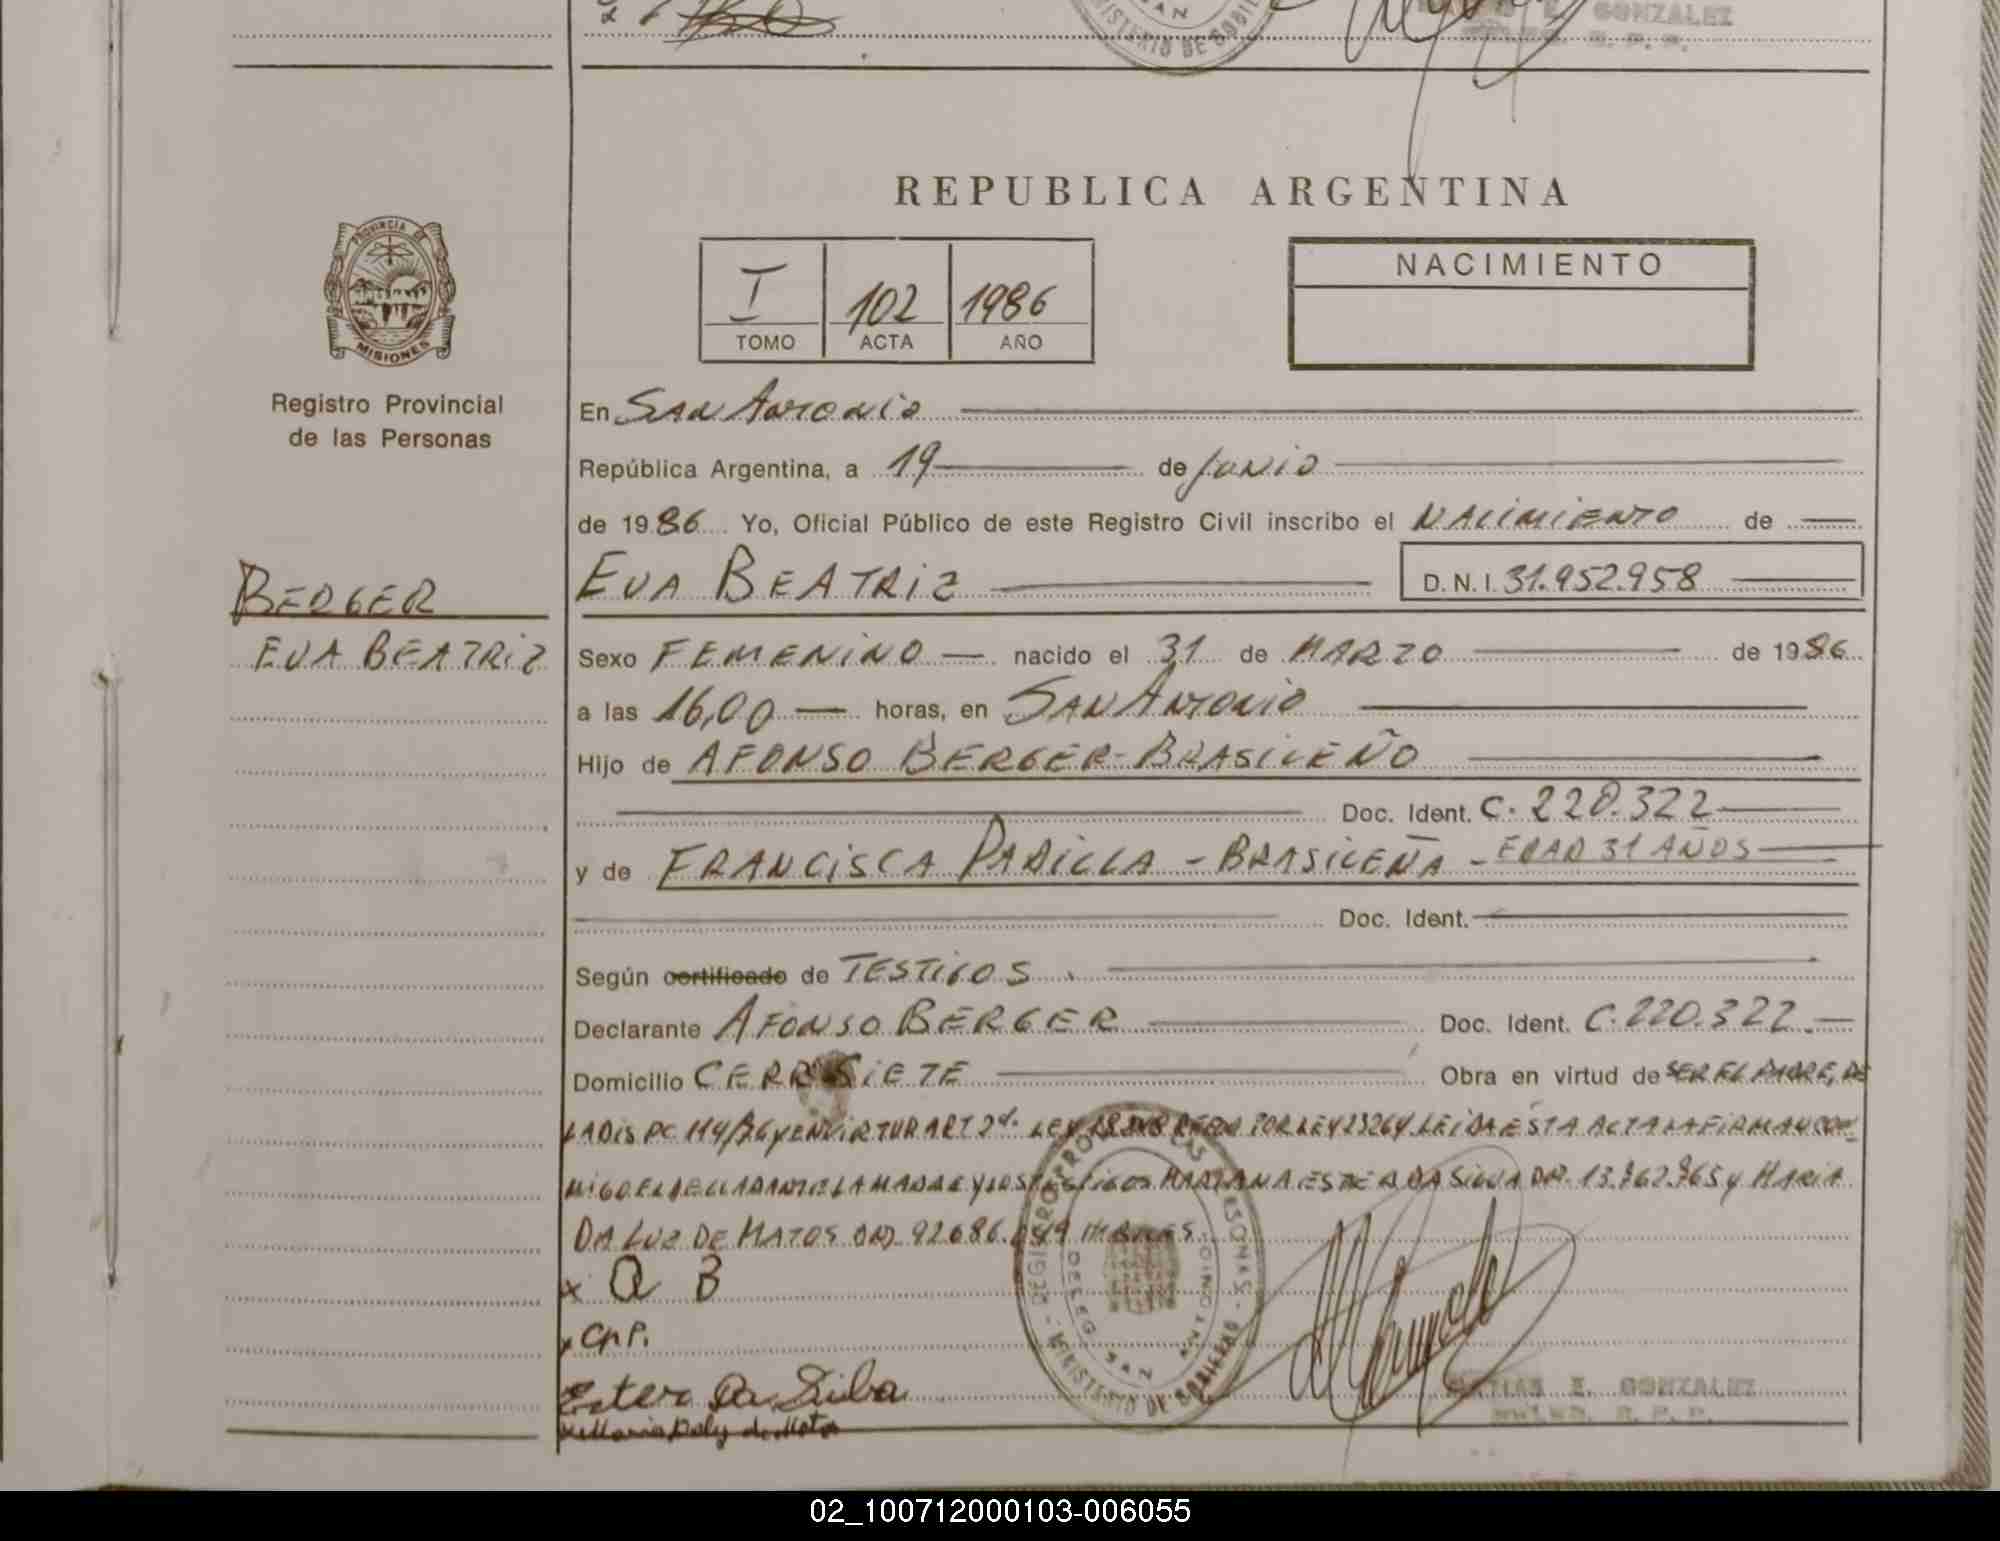 MINISTERIO DE GOBIE
SAN
E. GONZALEZ
R. P. P.
REPUBLICA ARGENTINA
PROVINCIA DE
MISIONES
Registro Provincial
de las Personas
I 102 1986
TOMO ACTA AÑO
NACIMIENTO
En San Antonio
República Argentina, a 19 de Junio
de 1986 Yo, Oficial Público de este Registro Civil inscribo el NACIMIENTO de
BERGER
EVA BEATRIZ
EVA BEATRIZ D.N.I. 31.952.958
Sexo FEMENINO nacido el 31 de MARZO de 1986
a las 16,00 horas, en SAN ANTONIO
Hijo de AFONSO BERGER - BRASILEÑO
Doc. Ident. C. 220.322
y de FRANCISCA PADILLA - BRASILEÑA - EDAD 31 AÑOS
Doc. Ident.
Según certificado de TESTIGOS
Declarante AFONSO BERGER Doc. Ident. C. 220.322
Domicilio CERRO SIETE Obra en virtud de SER EL PADRE, DE
LA DIS PC 114/86 Y EN VIRTUD ART 2 LEY POR LEY 23264. LEIDA ESTA ACTA LA FIRMAN CON
MIGO EL DECLARANTE LA MADRE Y LOS TESTIGOS MARIANA ESTER DA SILVA DNI. 13. Y MARIA
DA LUZ DE MATOS DNI 92686.
x A B
x C n P.
Ester Da Silba
x Maria de Mato
REGISTRO PRO LAS PERSONAS
MINISTERIO DE GOBIERNO
SAN ANTONIO
MATIAS E. GONZALEZ
R. P. P.
02_100712000103-006055